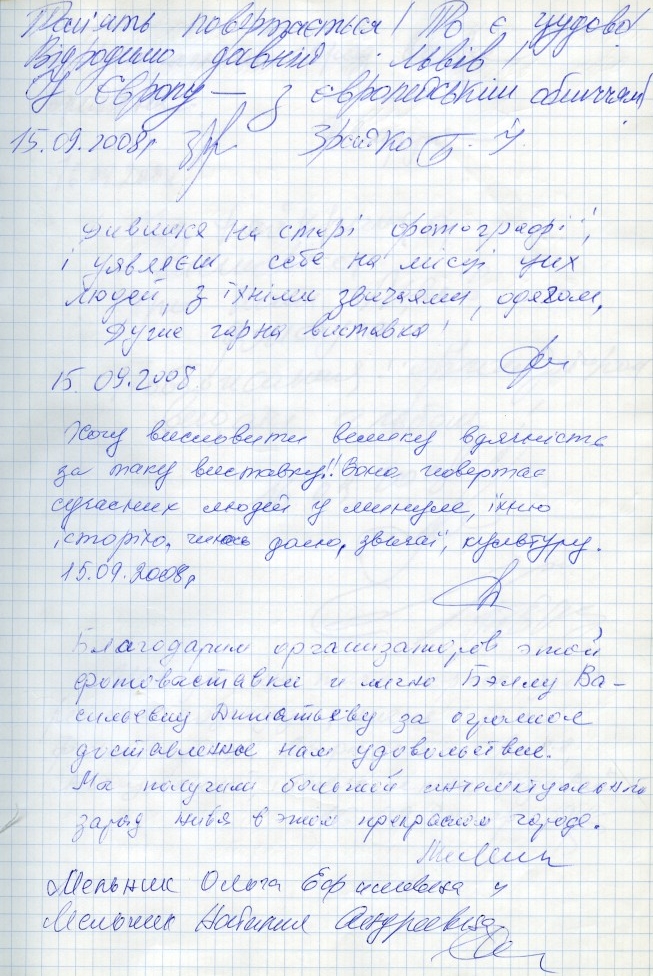 Пам'ять повертається! То є чудово!
Відродимо давній Львів!
У Європу — з європейським обличчям!
15.09.2008р Зрайко Б. Й.
дивишся на старі фотографії,
і уявляєш себе на місці цих
людей, з їхніми звичаями, одягом,
Дуже гарна виставка!
15.09.2008
Хочу висловити велику вдячність
за таку виставку!! Вона повертає
сучасних людей у минуле, їхню
історію, чиюсь долю, звичаї, культуру.
15.09.2008р
Благодарим организаторов этой
фотовыставки и лично Бэллу Ва-
сильевну за огромное
доставленное нам удовольствие.
Мы получили большой интелектуальный
заряд живя в этом прекрасном городе.
Мельник Ольга Ефимовна и
Мельник Наталия Андреевна